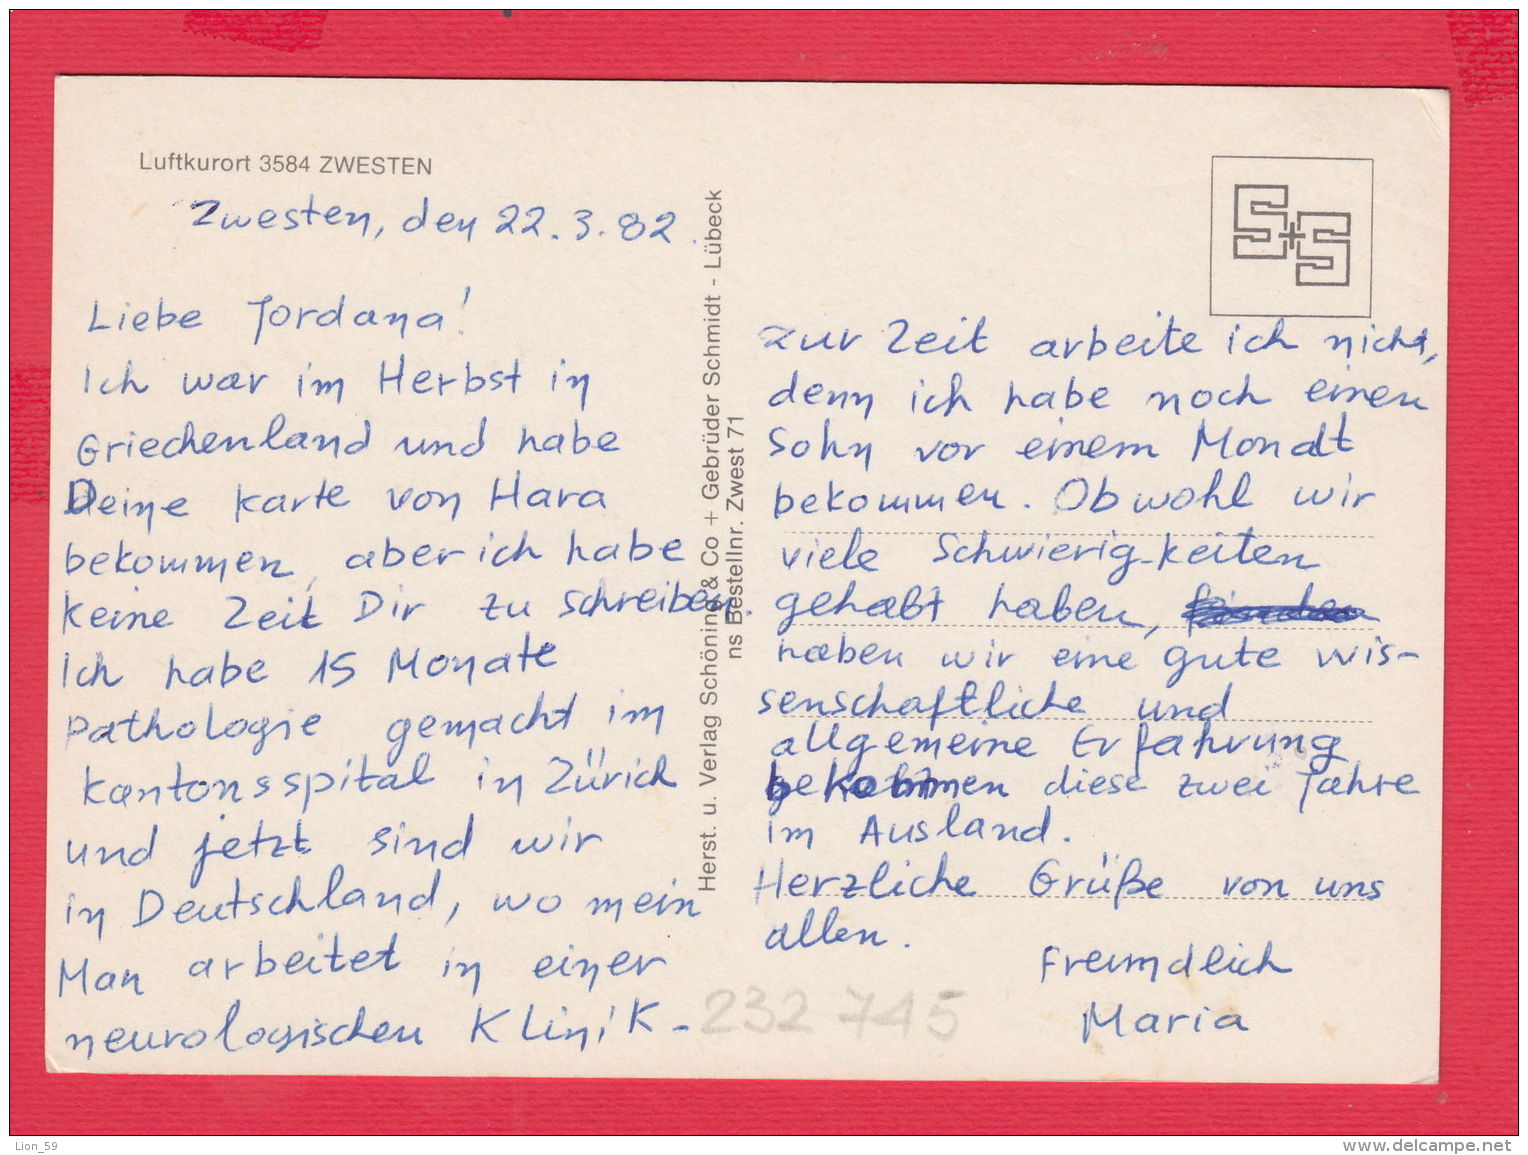 Luftkurort 3584 ZWESTEN
Zwesten, den 22.3.82.
Liebe Jordana!
Ich war im Herbst in
Griechenland und habe
Deine Karte von Hara
bekommen, aber ich habe
keine Zeit Dir zu schreiben.
Ich habe 15 Monate
Pathologie gemacht im
Kantonsspital in Zürich
und jetzt sind wir
in Deutschland, wo mein
Man arbeitet in einer
neurologischen Klinik.
Herst. u. Verlag Schöning & Co + Gebrüder Schmidt - Lübeck
ns Bestellnr. Zwest 71
S+S
Zur Zeit arbeite ich nicht,
denn ich habe noch einen
Sohn vor einem Monat
bekommen. Obwohl wir
viele Schwierig-keiten
gehabt haben,
haben wir eine gute wis-
senschaftliche und
allgemeine Erfahrung
bekommen diese zwei Jahre
im Ausland.
Herzliche Grüße von uns
allen.
Freundlich
Maria
232 745
Lion_59
www.delcampe.net